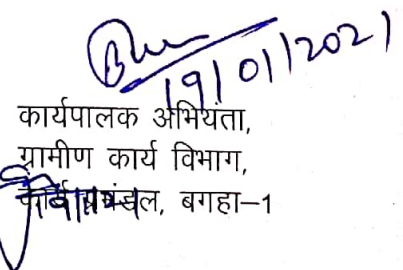 19/01/2021
कार्यपालक अभियंता,
ग्रामीण कार्य विभाग,
कार्य प्रमंडल, बगहा–1